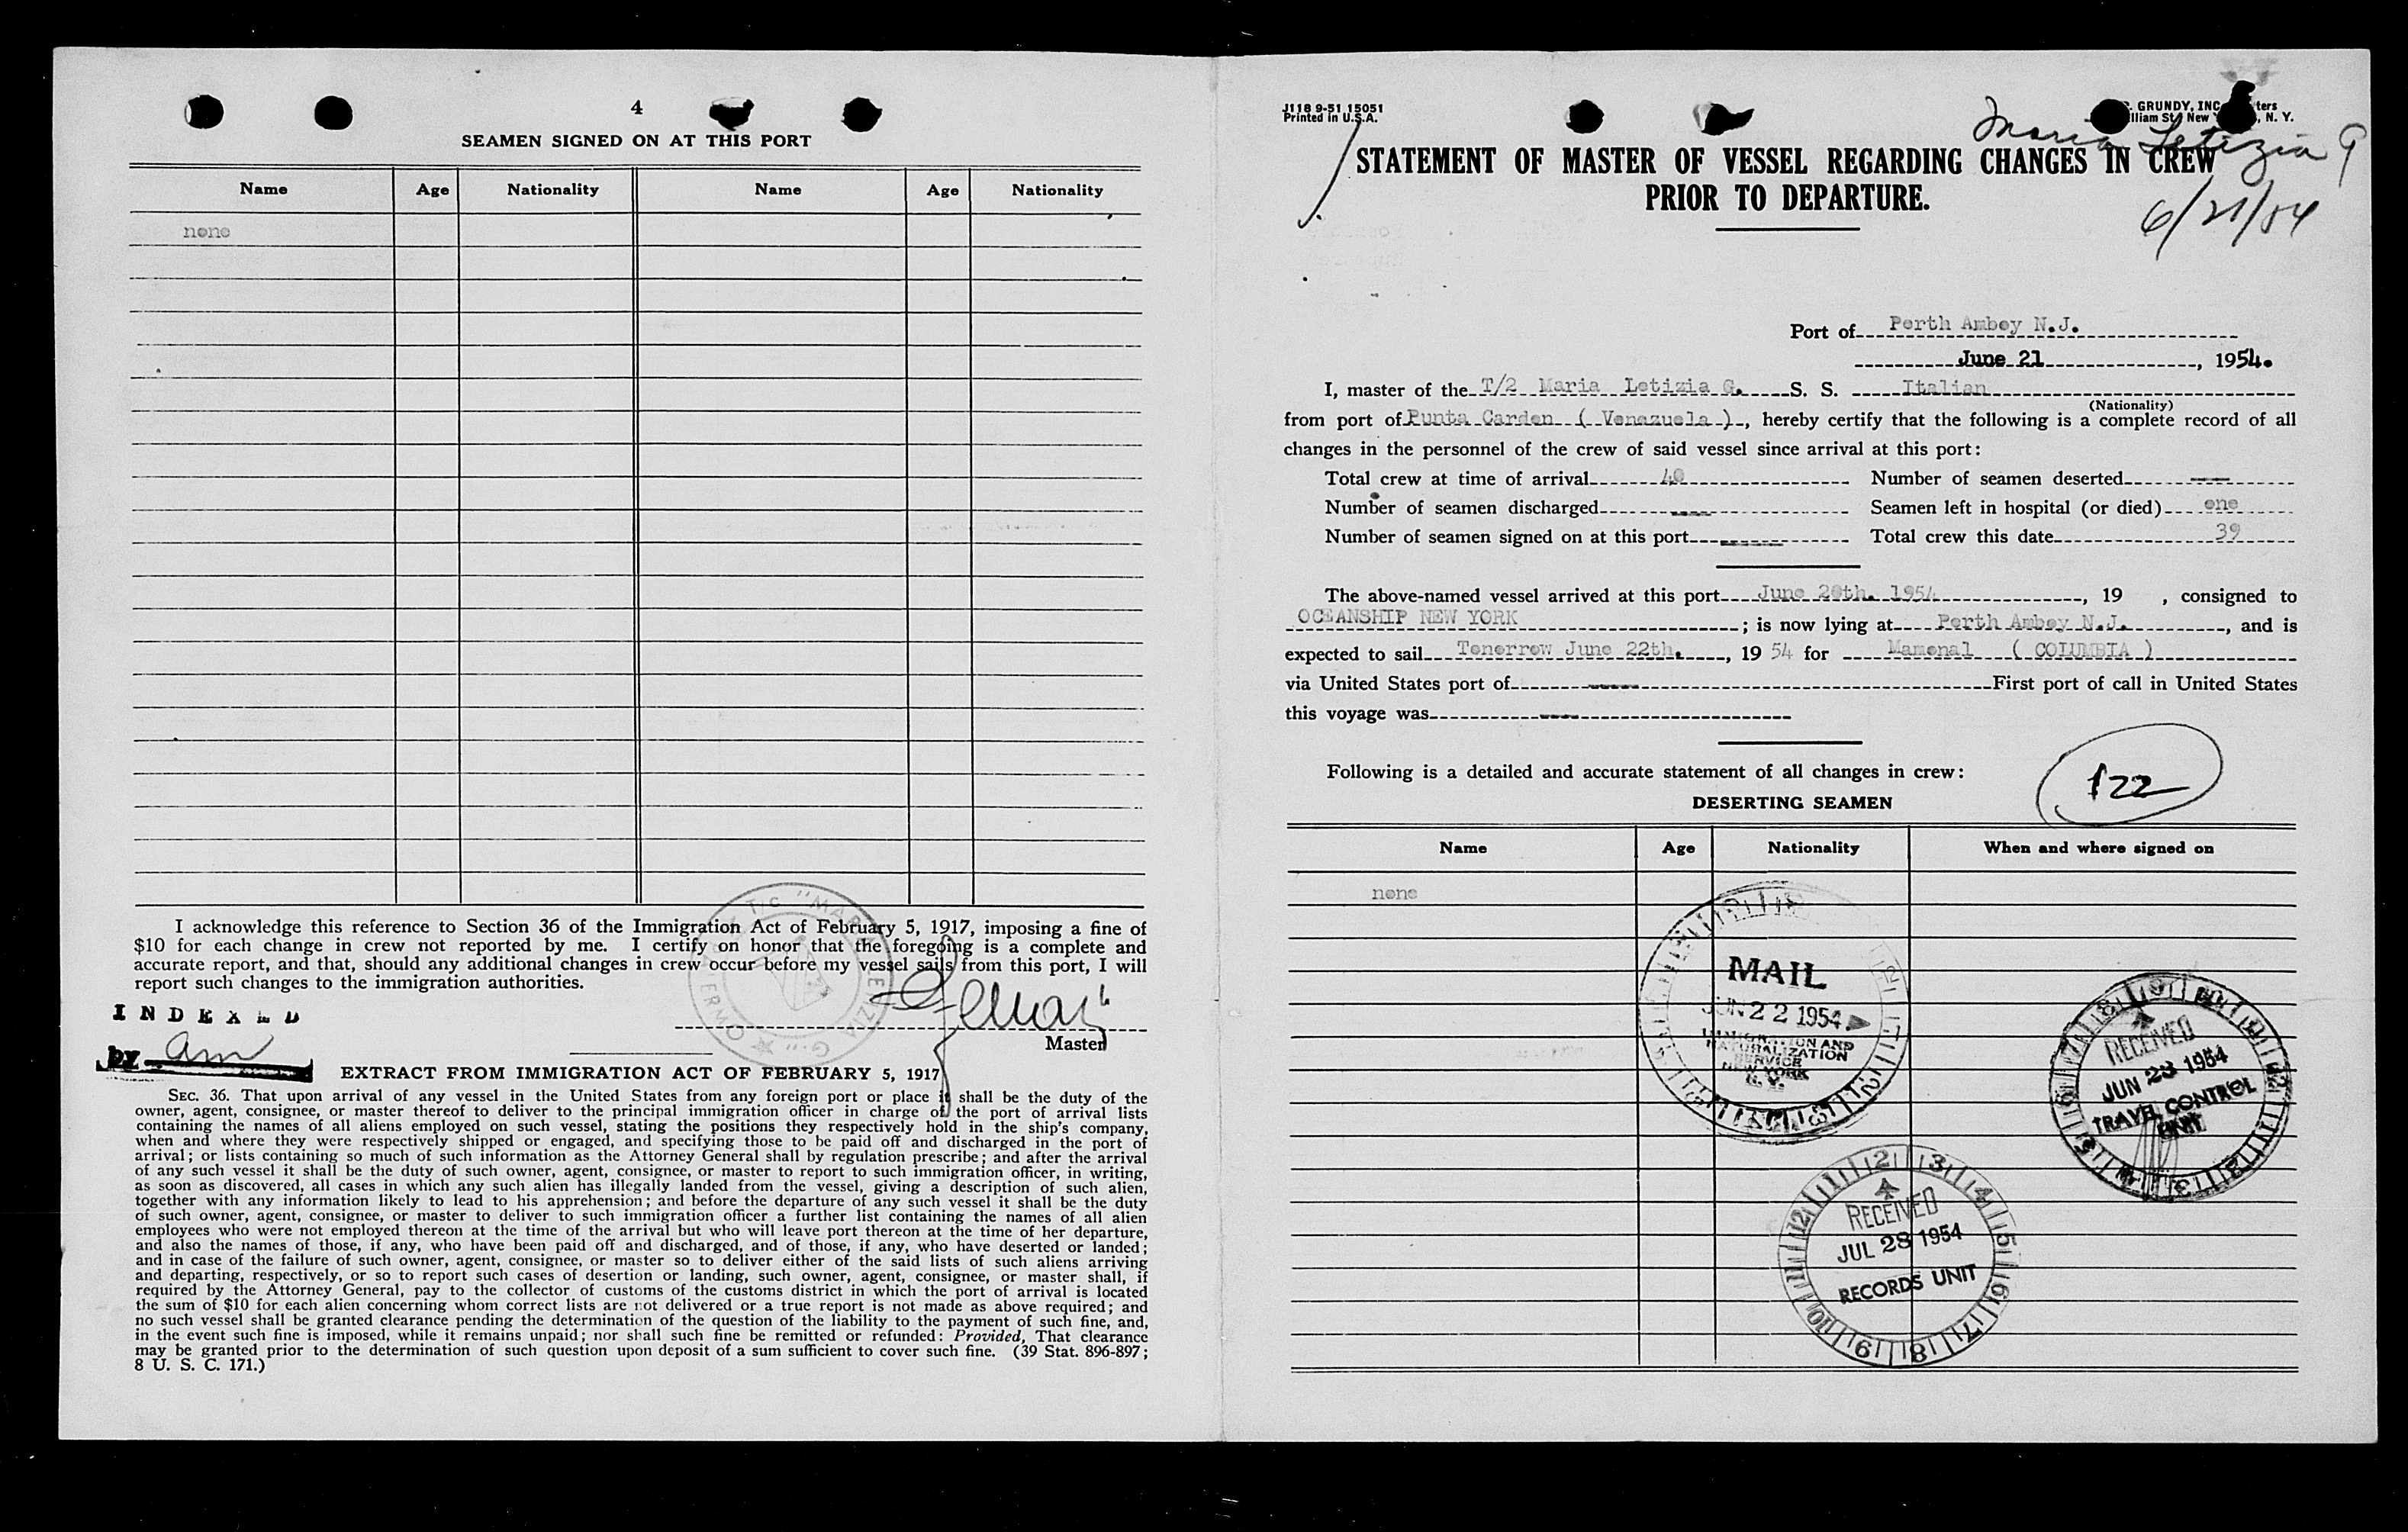 4
SEAMEN SIGNED ON AT THIS PORT
Name Age Nationality Name Age Nationality
none
I acknowledge this reference to Section 36 of the Immigration Act of February 5, 1917, imposing a fine of
$10 for each change in crew not reported by me. I certify on honor that the foregoing is a complete and
accurate report, and that, should any additional changes in crew occur before my vessel sails from this port, I will
report such changes to the immigration authorities.
INDEXED
by am
Master
EXTRACT FROM IMMIGRATION ACT OF FEBRUARY 5, 1917
SEC. 36. That upon arrival of any vessel in the United States from any foreign port or place it shall be the duty of the
owner, agent, consignee, or master thereof to deliver to the principal immigration officer in charge of the port of arrival lists
containing the names of all aliens employed on such vessel, stating the positions they respectively hold in the ship's company,
when and where they were respectively shipped or engaged, and specifying those to be paid off and discharged in the port of
arrival; or lists containing so much of such information as the Attorney General shall by regulation prescribe; and after the arrival
of any such vessel it shall be the duty of such owner, agent, consignee, or master to report to such immigration officer, in writing,
as soon as discovered, all cases in which any such alien has illegally landed from the vessel, giving a description of such alien,
together with any information likely to lead to his apprehension; and before the departure of any such vessel it shall be the duty
of such owner, agent, consignee, or master to deliver to such immigration officer a further list containing the names of all alien
employees who were not employed thereon at the time of the arrival but who will leave port thereon at the time of her departure,
and also the names of those, if any, who have been paid off and discharged, and of those, if any, who have deserted or landed;
and in case of the failure of such owner, agent, consignee, or master so to deliver either of the said lists of such aliens arriving
and departing, respectively, or so to report such cases of desertion or landing, such owner, agent, consignee, or master shall, if
required by the Attorney General, pay to the collector of customs of the customs district in which the port of arrival is located
the sum of $10 for each alien concerning whom correct lists are not delivered or a true report is not made as above required; and
no such vessel shall be granted clearance pending the determination of the question of the liability to the payment of such fine, and,
in the event such fine is imposed, while it remains unpaid; nor shall such fine be remitted or refunded: Provided, That clearance
may be granted prior to the determination of such question upon deposit of a sum sufficient to cover such fine. (39 Stat. 896-897;
8 U. S. C. 171.)
J118 9-51 15051
Printed in U.S.A.
GRUNDY, INC
St New N. Y.
Maria Letizia G
STATEMENT OF MASTER OF VESSEL REGARDING CHANGES IN CREW
PRIOR TO DEPARTURE.
6/21/54
Port of Perth Amboy N.J.
June 21, 1954.
I, master of the T/2 Maria Letizia G. S. S. Italian
(Nationality)
from port of Punta Carden ( Venezuela ), hereby certify that the following is a complete record of all
changes in the personnel of the crew of said vessel since arrival at this port:
Total crew at time of arrival 40 Number of seamen deserted ---
Number of seamen discharged --- Seamen left in hospital (or died) one
Number of seamen signed on at this port --- Total crew this date 39
The above-named vessel arrived at this port June 20th. 1954, 19 , consigned to
OCEANSHIP NEW YORK; is now lying at Perth Amboy N.J., and is
expected to sail Tomorrow June 22th., 19 54 for Mamonal ( COLUMBIA )
via United States port of --- First port of call in United States
this voyage was ---
Following is a detailed and accurate statement of all changes in crew:
122
DESERTING SEAMEN
Name Age Nationality When and where signed on
none
MAIL
JUN 22 1954
IMMIGRATION AND
NATURALIZATION
SERVICE
NEW YORK
N. Y.
RECEIVED
JUN 23 1954
TRAVEL CONTROL
UNIT
RECEIVED
JUL 28 1954
RECORDS UNIT